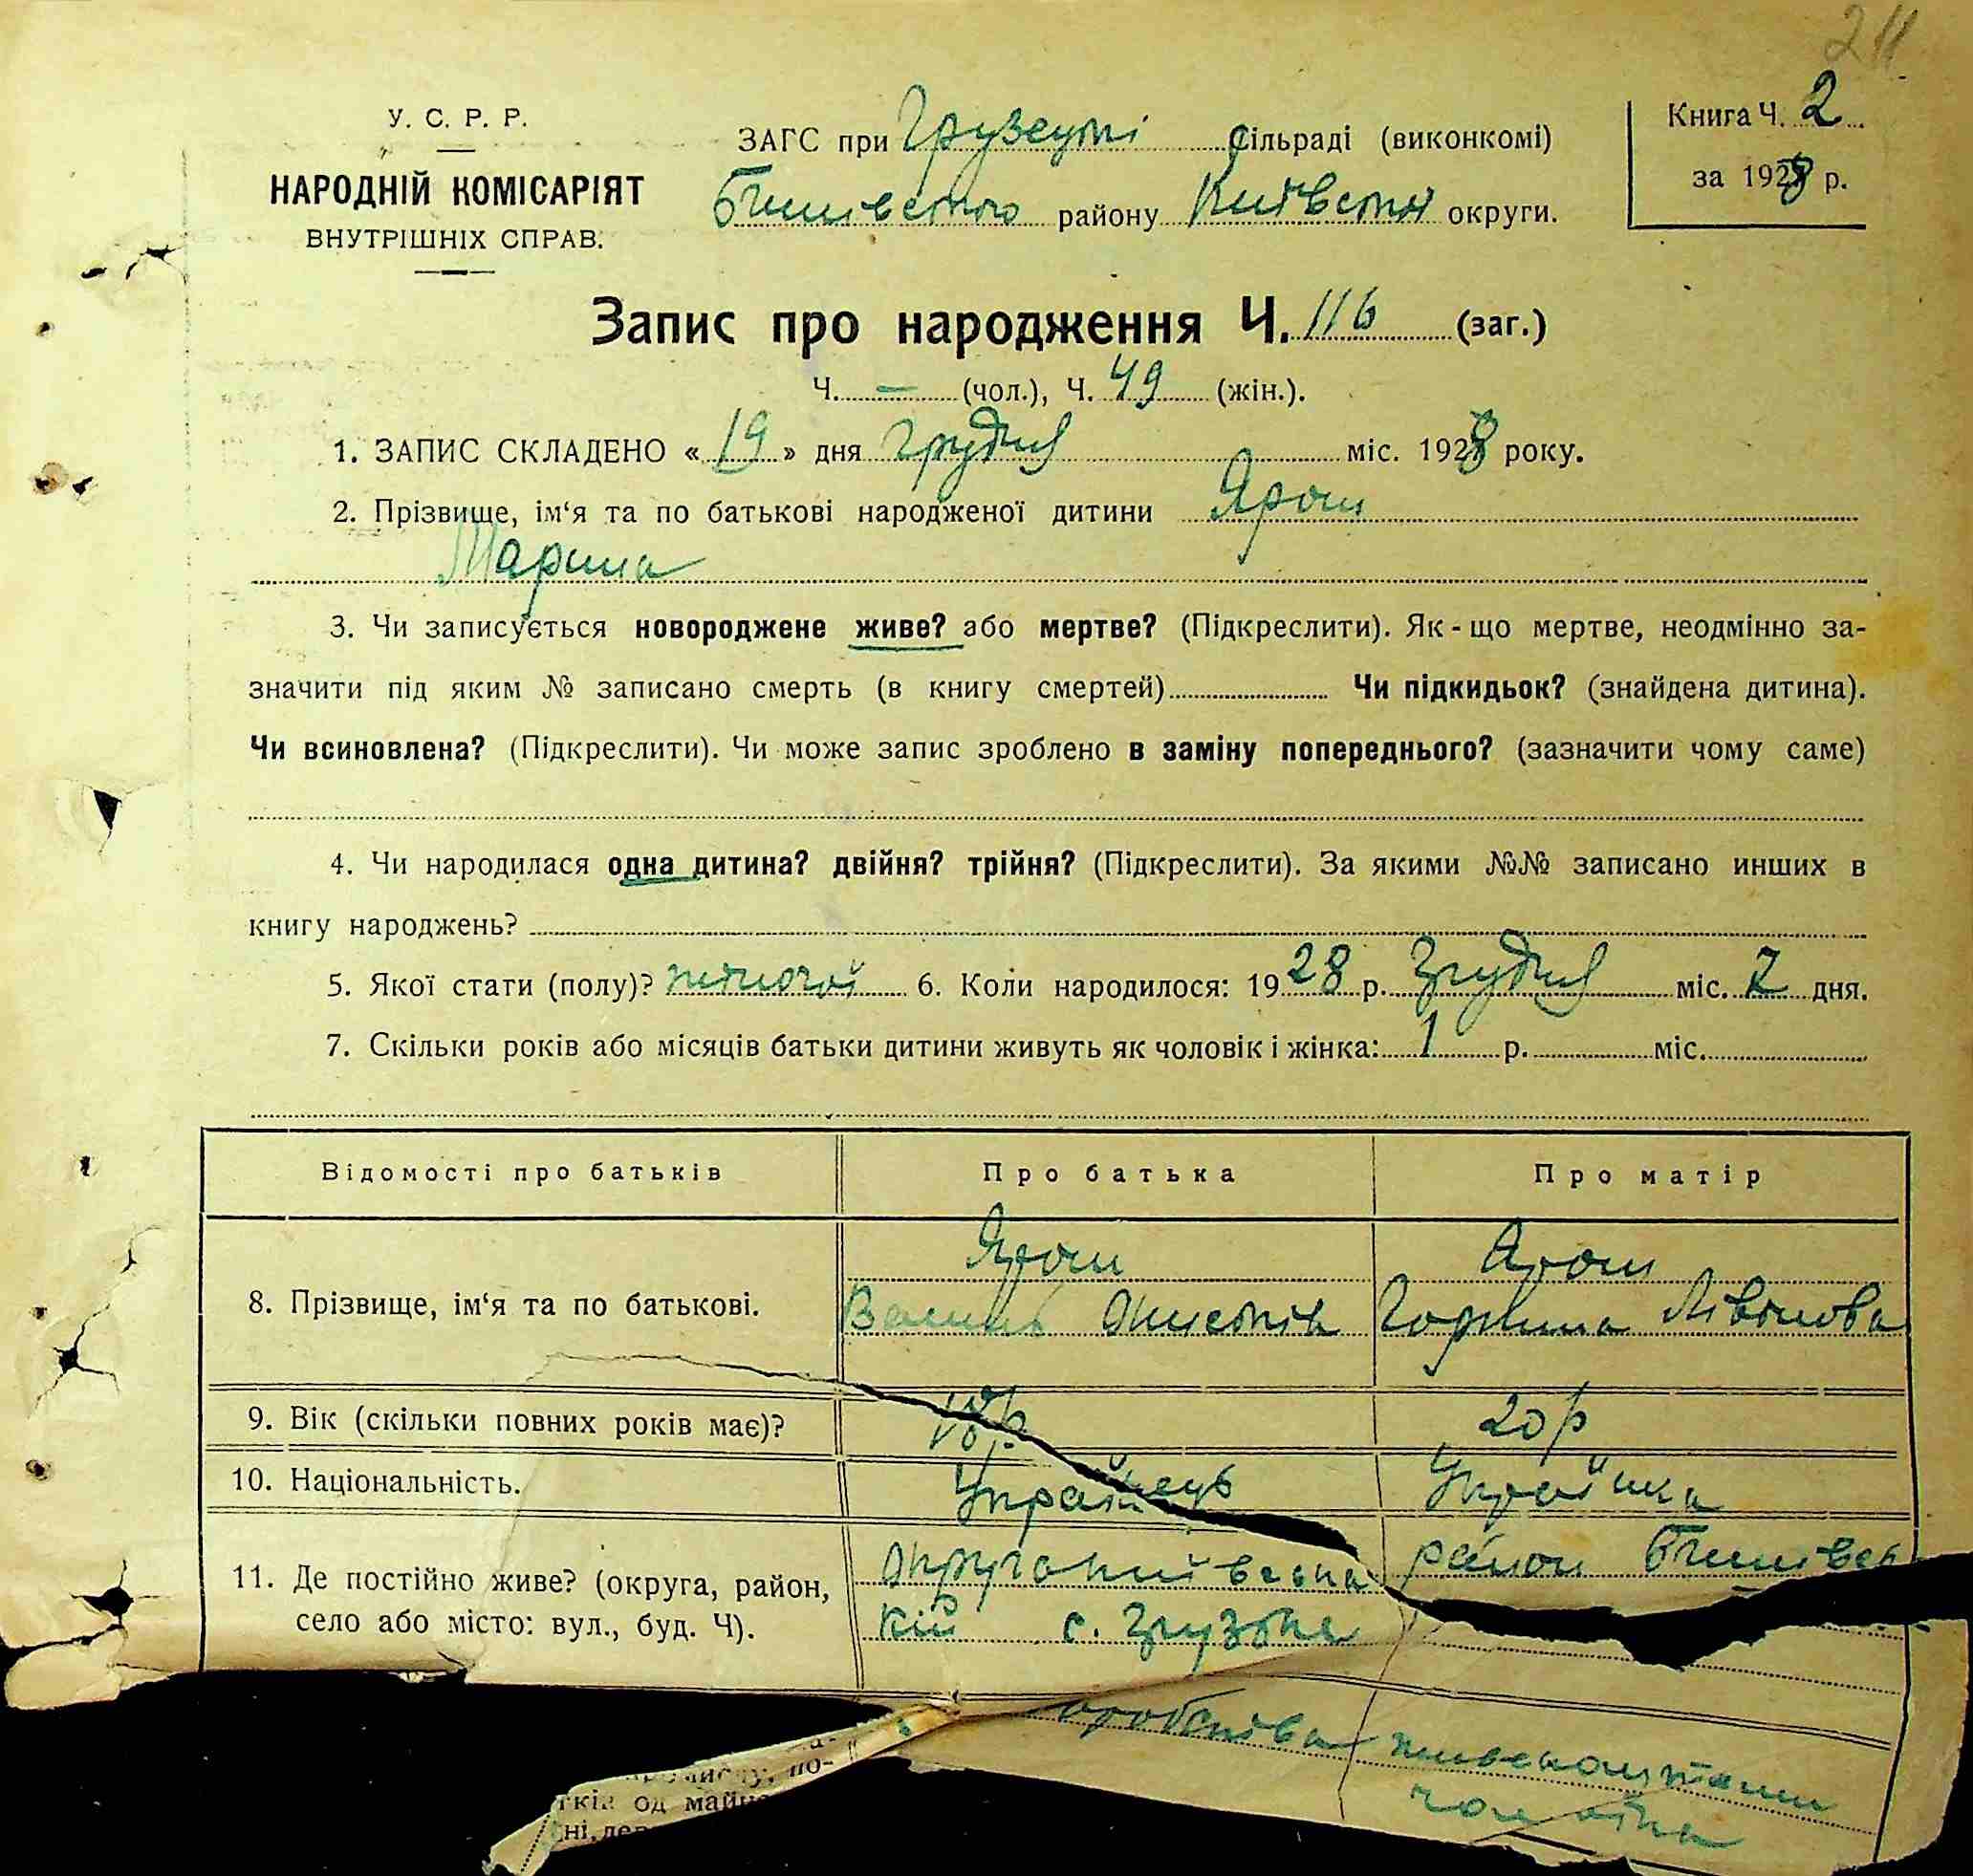 211
У. С. Р. Р.
НАРОДНІЙ КОМІСАРІЯТ
ВНУТРІШНІХ СПРАВ.
ЗАГС при Грузецькі сільраді (виконкомі)
Бишівського району Київської округи.
Книга Ч. 2
за 1928 р.
Запис про народження Ч. 116 (заг.)
Ч. — (чол.), Ч. 49 (жін.).
1. ЗАПИС СКЛАДЕНО «19» дня Грудня міс. 1928 року.
2. Прізвище, ім‘я та по батькові народженої дитини Ярош
Марина
3. Чи записується новороджене живе? або мертве? (Підкреслити). Як-що мертве, неодмінно за-
значити під яким № записано смерть (в книгу смертей) Чи підкидьок? (знайдена дитина).
Чи всиновлена? (Підкреслити). Чи може запис зроблено в заміну попереднього? (зазначити чому саме)
4. Чи народилася одна дитина? двійня? трійня? (Підкреслити). За якими №№ записано инших в
книгу народжень?
5. Якої стати (полу)? жіночої 6. Коли народилося: 1928 р. Грудня міс. 7 дня.
7. Скільки років або місяців батьки дитини живуть як чоловік і жінка: 1 р. міс.
Відомості про батьків Про батька Про матір
8. Прізвище, ім‘я та по батькові. Ярош Ярош
Василь Горпина
9. Вік (скільки повних років має)? 20 р
10. Національність. Українець Українка
11. Де постійно живе? (округа, район, Округа Київська район Бишівсь
село або місто: вул., буд. Ч). кий с. Грузьке
на утриманні
чоловіка
по-
од майна